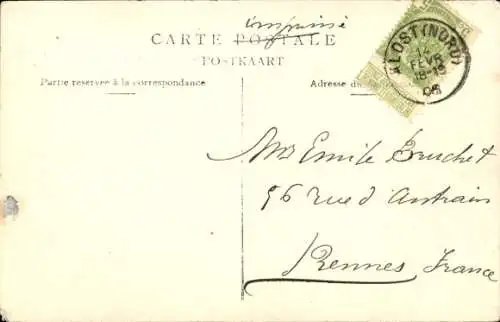 imprimé
CARTE POSTALE
POSTKAART
Partie réservée à la correspondance
Adresse du
ALOST (NORD)
14
FEVR
18-19
06
Mr Emile Bruchet
56 rue d'Antrain
Rennes France